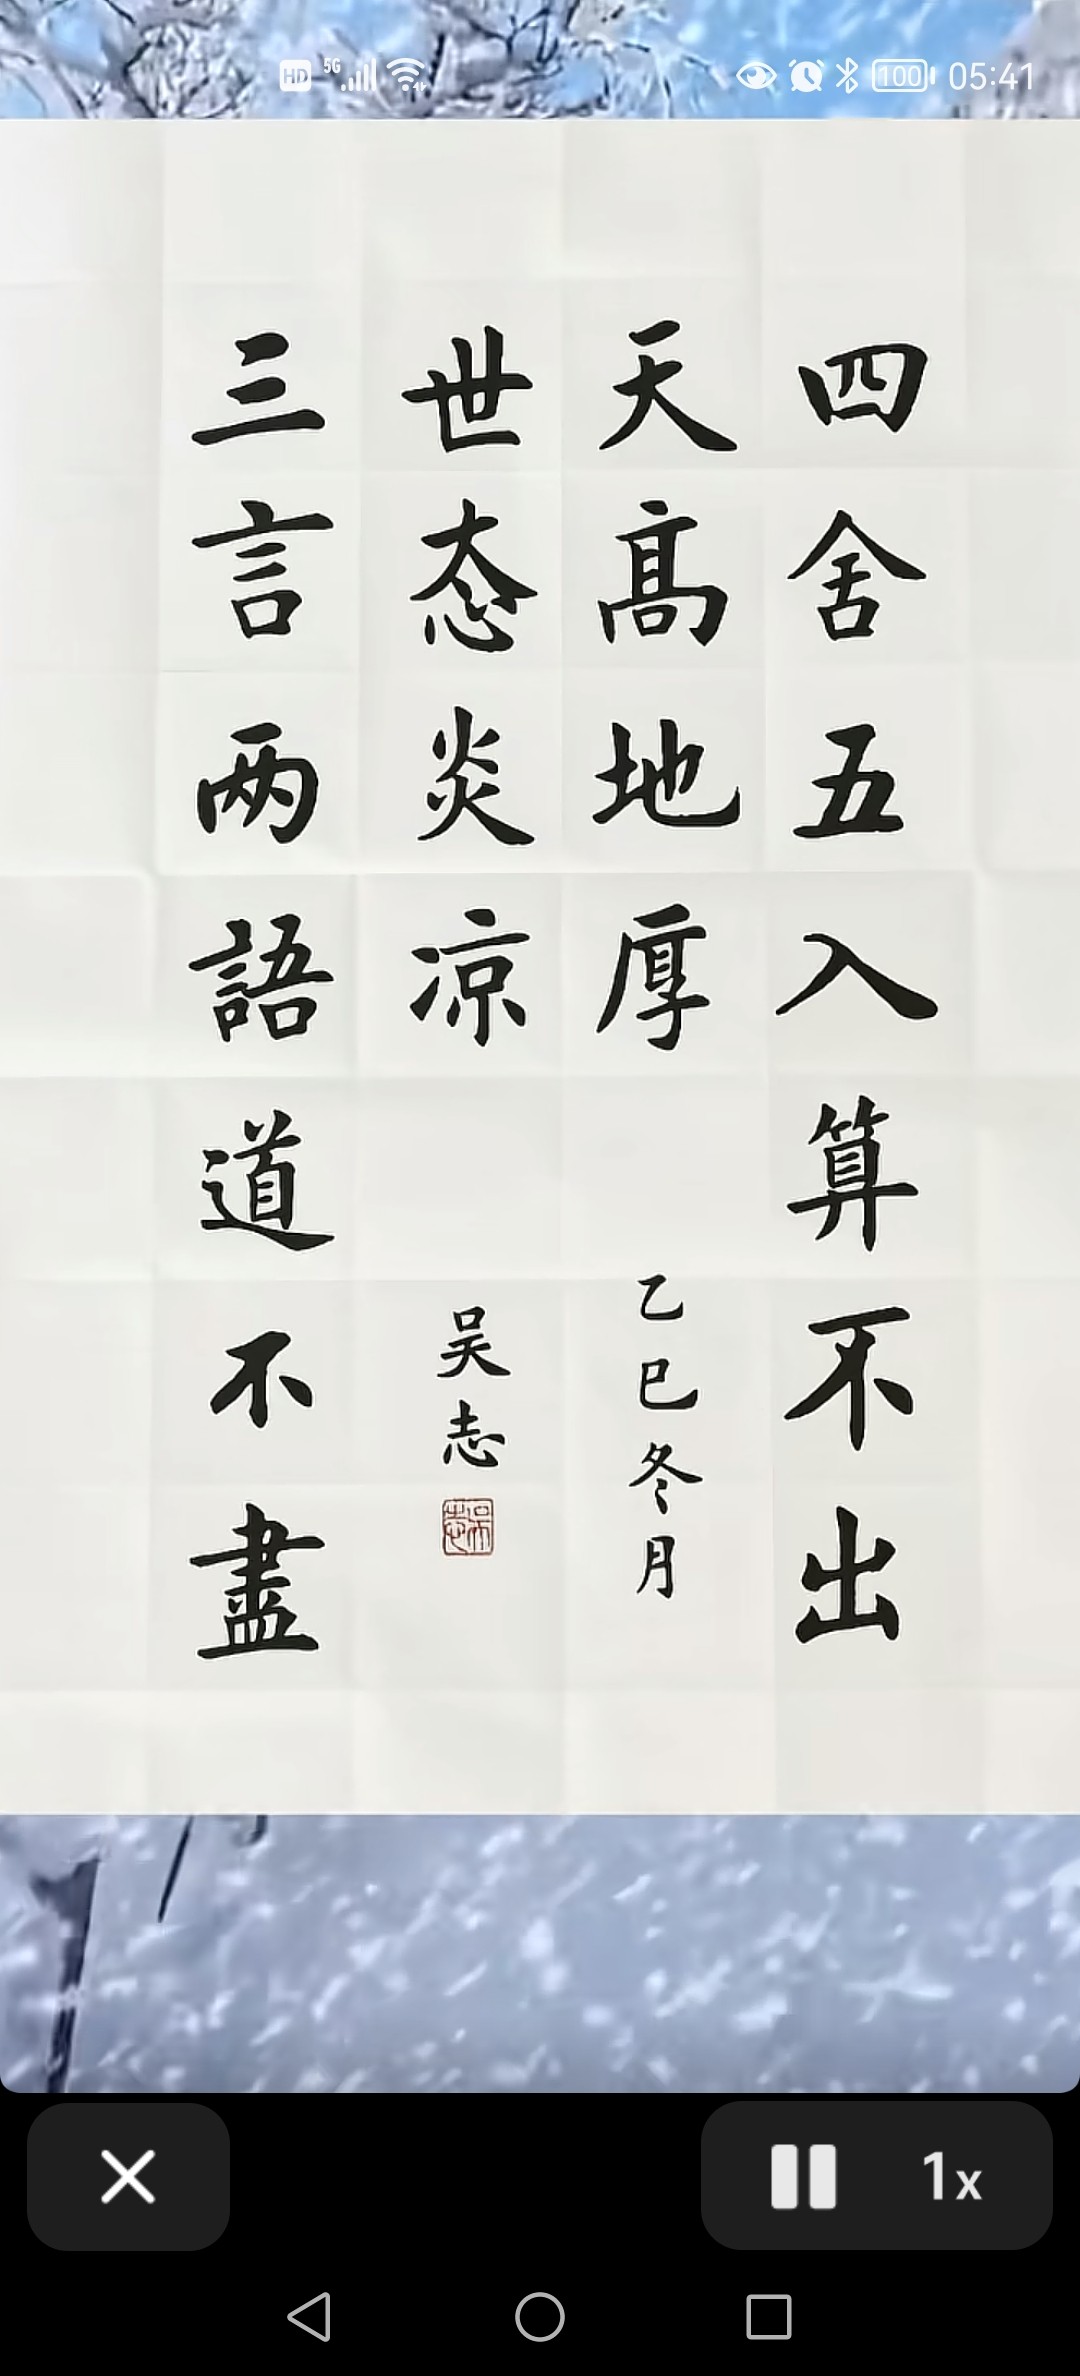 HD 5G 100 05:41
四舍五入算不出
天高地厚
乙巳冬月
世态炎凉
吴志
吴志
三言两語道不盡
1x